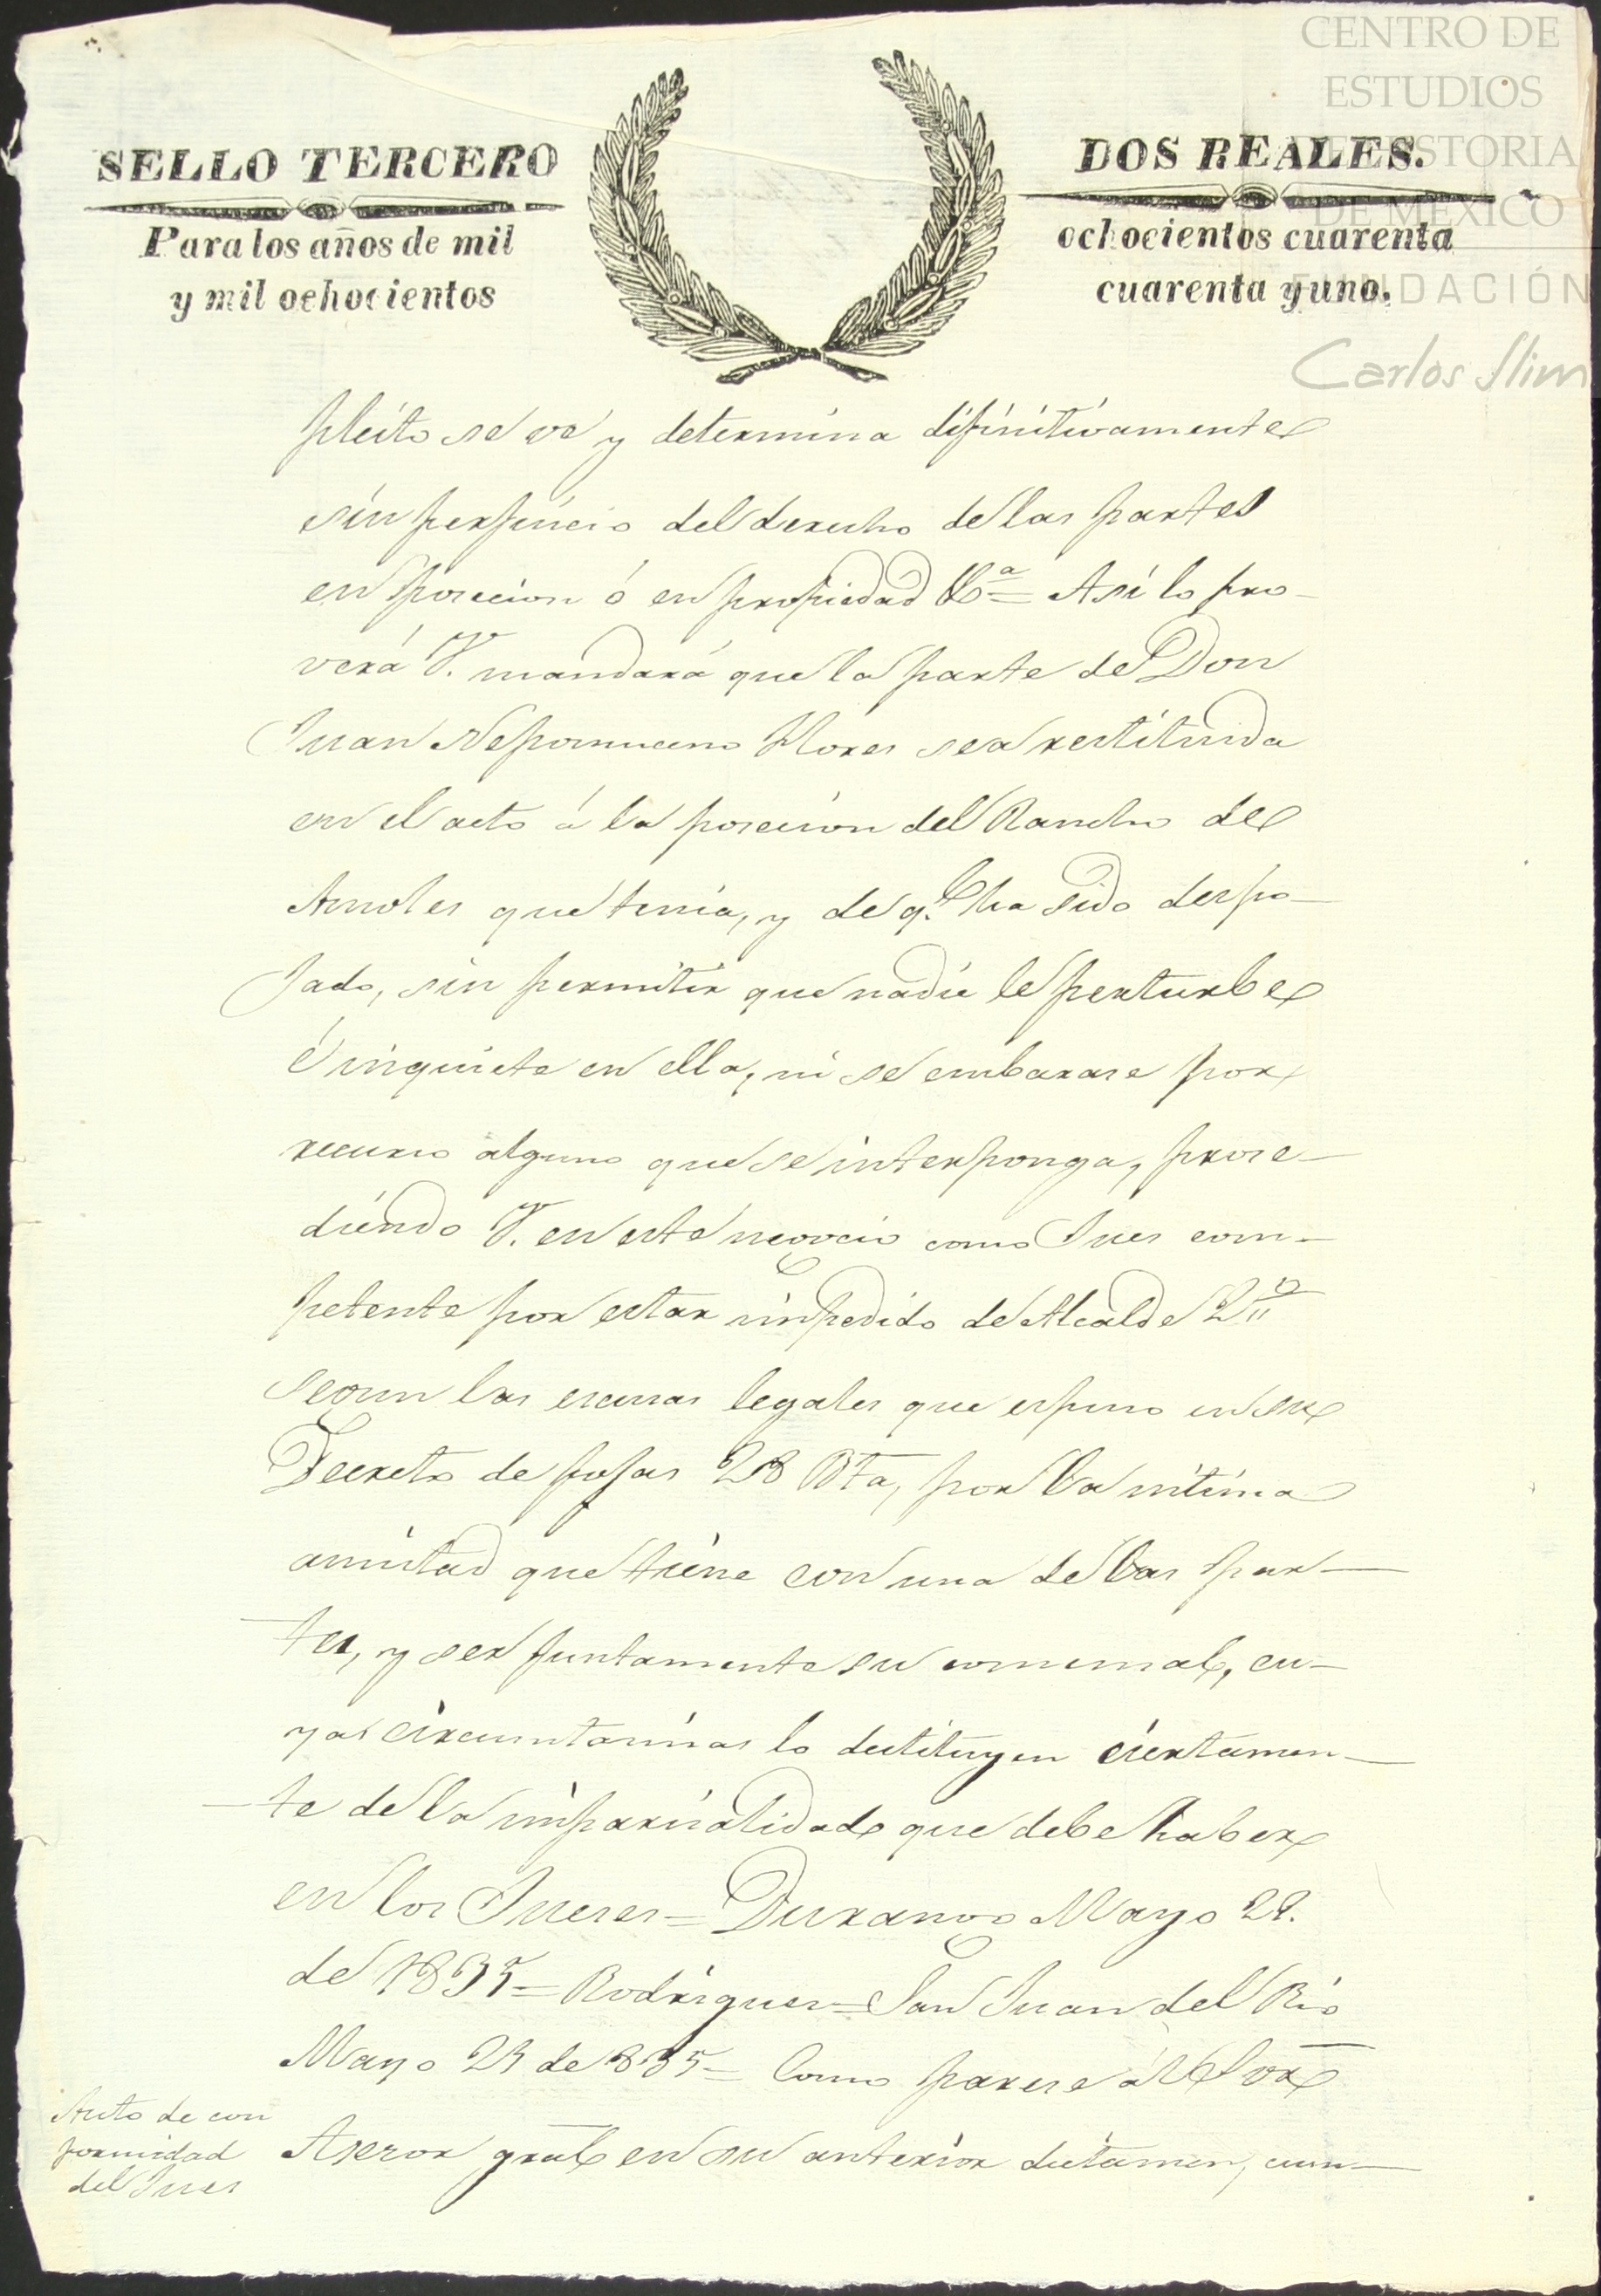 CENTRO DE
ESTUDIOS
DE HISTORIA
DE MÉXICO
FUNDACIÓN
Carlos Slim
SELLO TERCERO
DOS REALES.
Para los años de mil
ochocientos cuarenta
y mil ochocientos
cuarenta y uno.
pleito se ve y determina difinitivamente
sin perjuicio del derecho de las partes
en posecion ó en propiedad &ª = Asi lo pro-
verá V. mandará que la parte de Don
Juan Nepomuceno Flores sea restituida
en el acto á la posecion del Rancho de
Amoles que tenia, y de q.e ha sido despo-
jado, sin permitir que nadie le perturbe
é inquiete en ella, ni se embarase por
recurso alguno que se interponga, proce-
diendo V. en este negocio como Jues com-
petente por estar impedido de Alcalde 2º
segun las escusas legales que espuso en su
Decreto de fojas 28 Bta, por la intima
amistad que tiene con una de las par-
tes, y ser juntamente su comensal, cu-
yas circunstancias lo destituyen ciertamen-
te de la imparcialidad que debe haber
en los Jueses = Durango Mayo 22.
de 1835 = Rodrigues = San Juan del Rio
Mayo 29 de 835 = Como parese al Sor
Auto de con
formidad
del Jues
Asesor gral en su anterior dictamen, cum-